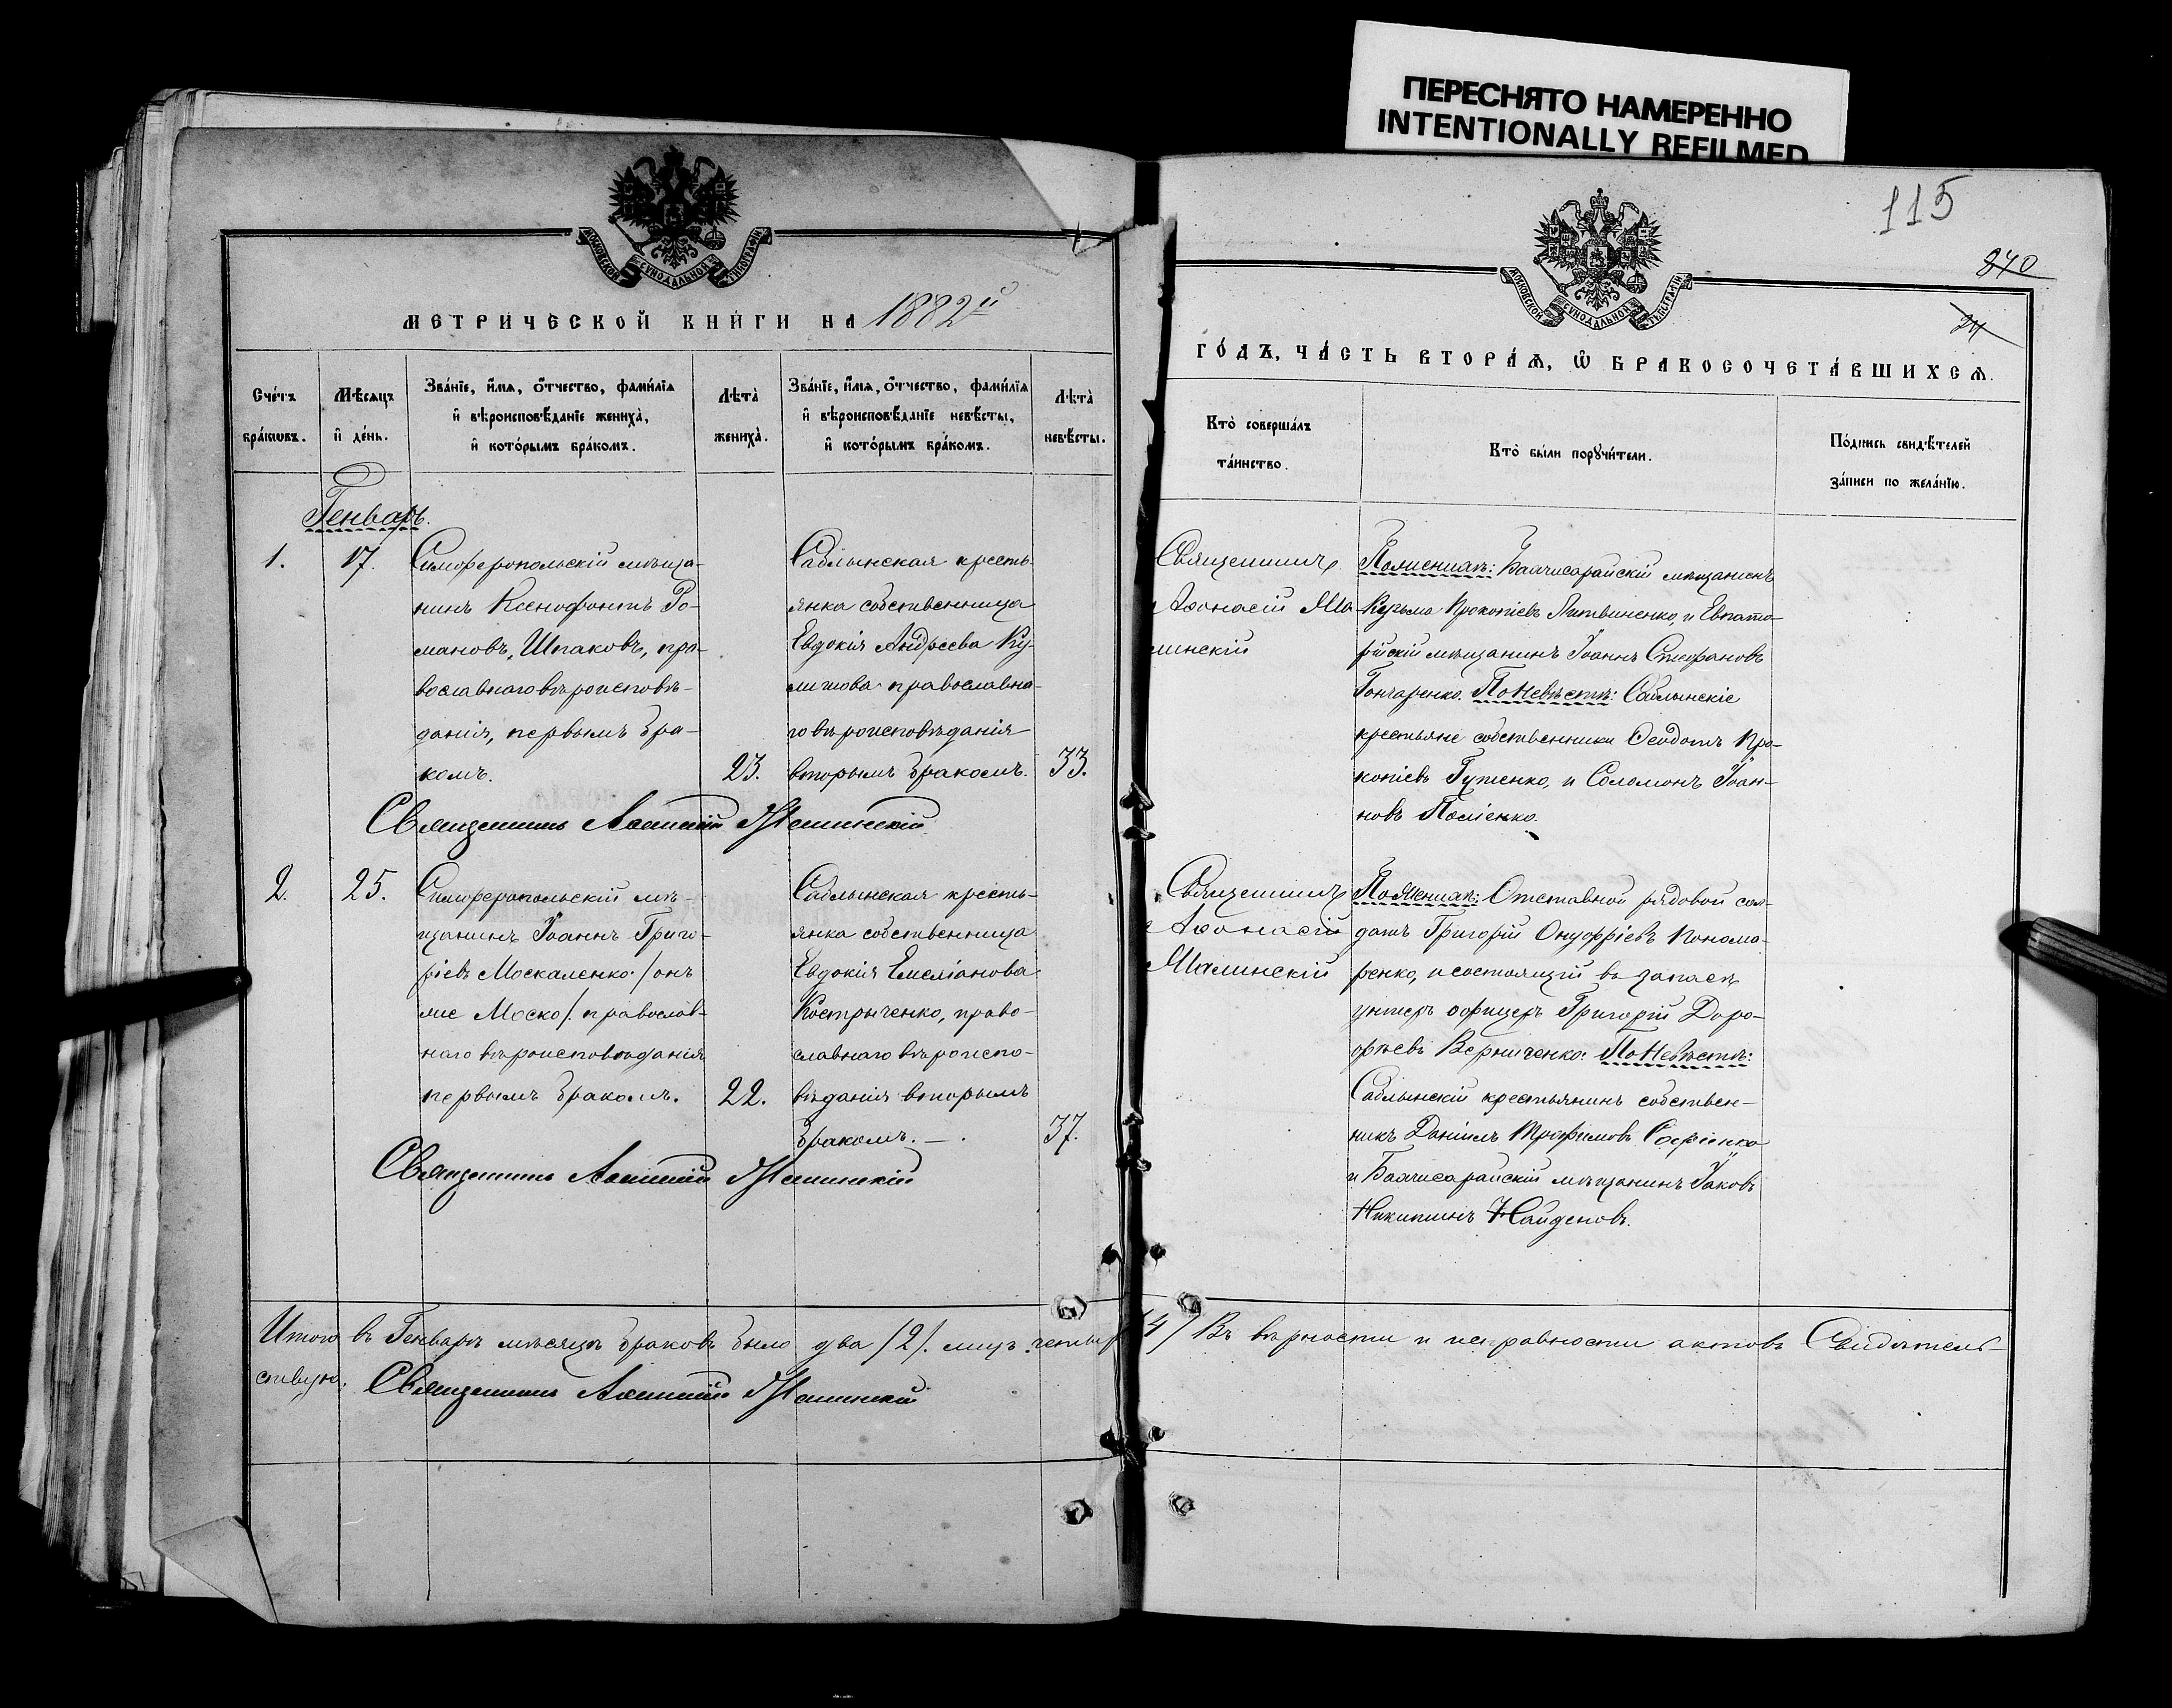 ПЕРЕСНЯТО НАМЕРЕННО
INTENTIONALLY REFILMED
115
МОСКОВСКОЙ СУНОДАЛЬНОЙ ТИПОГРАФІИ
МОСКОВСКОЙ СУНОДАЛЬНОЙ ТИПОГРАФІИ
240
24
МЕТРИ́ЧЕСКОЙ КНИ́ГИ НА 1882й
ГО́ДЪ, ЧА́СТЬ ВТОРА́Ѧ, Ѽ БРАКОСОЧЕТА́ВШИХСѦ.
Сче́тъ бра́кѡвъ.
Мѣ́сѧцъ и де́нь.
Зва́нїе, и́мѧ, ѻ́тчество, фами́лїѧ
и вѣроисповѣ́данїе жениха̀,
и кото́рымъ бра́комъ.
Лѣта̀ жениха̀.
Зва́нїе, и́мѧ, ѻ́тчество, фами́лїѧ
и вѣроисповѣ́данїе невѣ́сты,
и кото́рымъ бра́комъ.
Лѣта̀ невѣ́сты.
Кто̀ соверша́лъ
та́инство.
Кто̀ бы́ли порꙋчи́тели.
По́дпись свидѣ́телей
за́писи по жела́нїю.
Генварь.
1.
17.
Симферопольскій мѣща-
нинъ Ксенофонтъ Ро-
мановъ, Шпаковъ, пра-
вославнаго вѣроисповѣ-
данія, первымъ бра-
комъ.
23.
Саблынская кресть-
янка собственница
Евдокія Андреева Ку-
лишова православна-
го вѣроисповѣданія
вторымъ бракомъ.
33.
Священникъ
Аѳонасій Ма-
линскій
По женихѣ: Бахчисарайскій мѣщанинъ
Кузьма Прокопіевъ Литвиненко, и Евпато-
рійскій мѣщанинъ Іоаннъ Стефановъ
Гончаренко. По Невѣстѣ: Саблынскіе
крестьяне собственники Ѳеодотъ Про-
копіевъ Гутенко, и Соломонъ Іоан-
новъ
Священникъ Аѳанасій Малинскій
2.
25.
Симферопольскій мѣ-
щанинъ Іоаннъ Григо-
ріевъ Москаленко /онъ
же Моско/. православ-
наго вѣроисповѣданія
первымъ бракомъ.
22.
Саблынская кресть-
янка собственница
Евдокія Емеліанова
Кострыченко, право-
славнаго вѣроиспо-
вѣданія вторымъ
бракомъ. —
37.
Священникъ
Аѳонасій
Малинскій
По Женихѣ: Отставной рядовой сол-
датъ Григорій Онуфріевъ Понома-
ренко, и состоящій въ запасѣ
унтеръ офицеръ Григорій Доро-
ѳѣевъ Верниченко. По Невѣстѣ:
Саблынскій крестьянинъ собствен-
никъ Даніилъ Трофимовъ Софіенко
и Бахчисарайскій мѣщанинъ Іаковъ
Никитинъ Найденовъ.
Священникъ Аѳанасій Малинскій
Итого въ Генварѣ мѣсяцѣ браковъ было два /2/. лицъ четыр /4/ Въ вѣрности и исправности актовъ Свидѣтель-
ствую: Священникъ Аѳанасій Малинскій